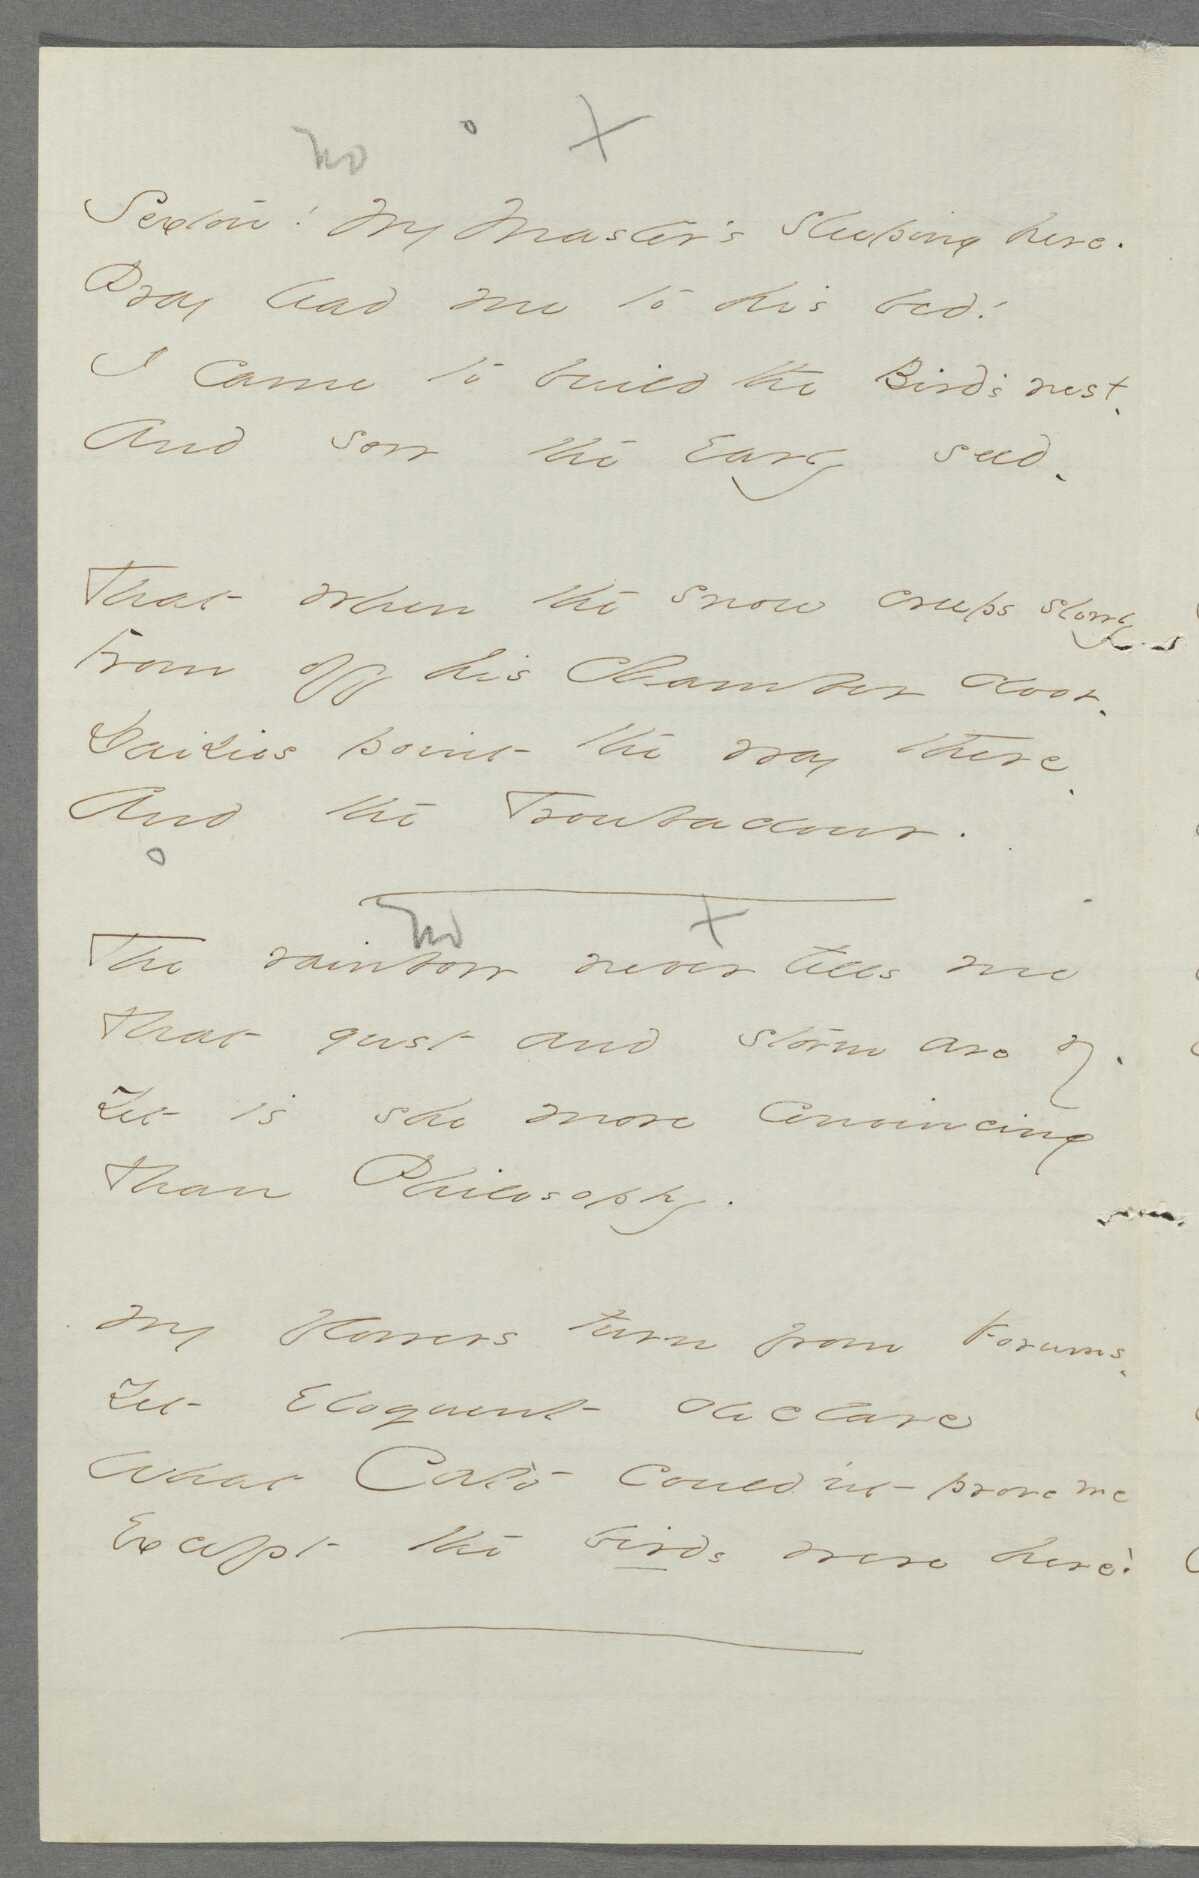 no o X
Sexton! My Master's sleeping here.
Pray lead me to his bed!
I came to build the Bird's nest,
And sow the Early seed.
That when the snow creeps slowly
From off his chamber door.
Daisies point the way there,
And the Troubadour.
o
no X
The rainbow never tells me
That gust and storm are by.
Yet is she more convincing
Than Philosophy.
My flowers turn from Forums,
Yet Eloquent declare
What Cato could'nt prove me
Except the birds were here!